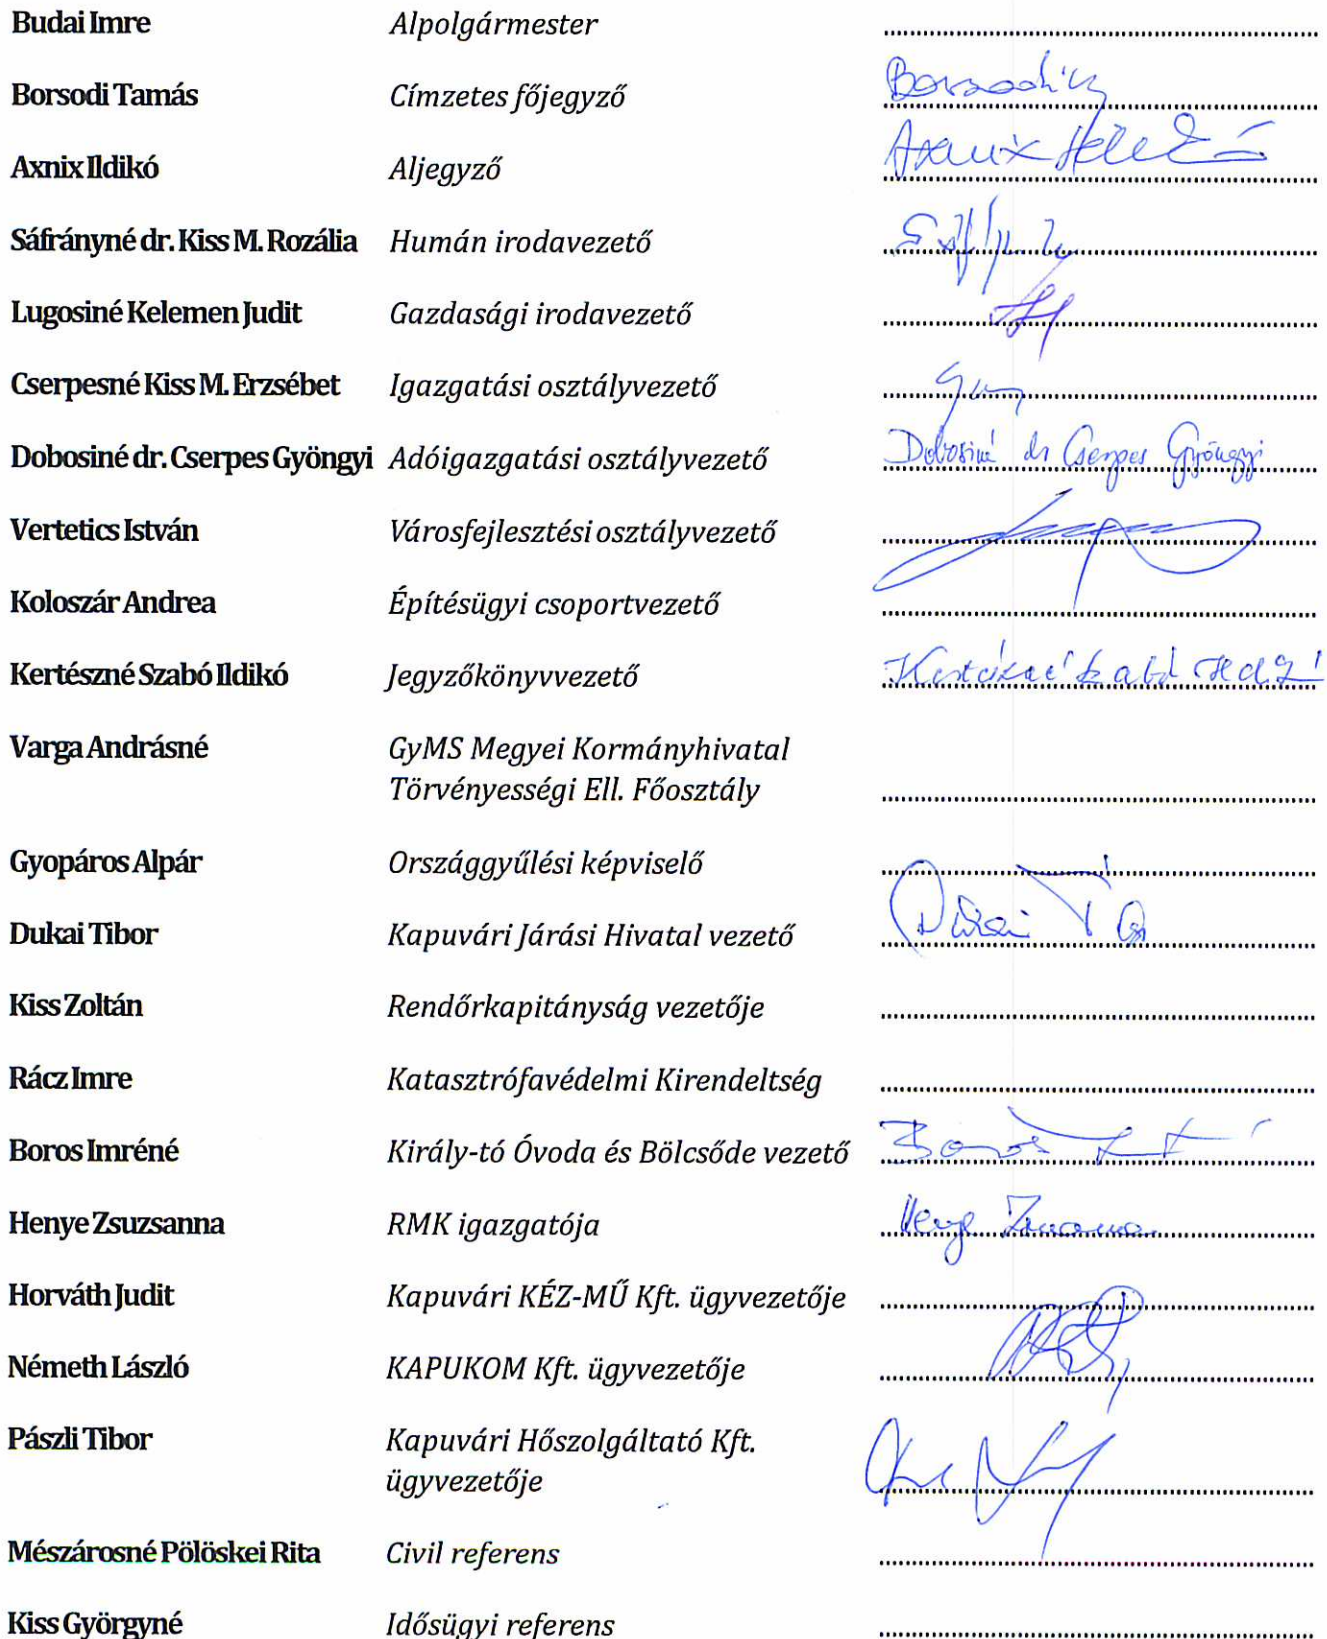 Budai Imre Alpolgármester
Borsodi Tamás Címzetes főjegyző Borsodi
Axnix Ildikó Aljegyző Axnix Ildikó
Sáfrányné dr. Kiss M. Rozália Humán irodavezető
Lugosiné Kelemen Judit Gazdasági irodavezető
Cserpesné Kiss M. Erzsébet Igazgatási osztályvezető
Dobosiné dr. Cserpes Gyöngyi Adóigazgatási osztályvezető Dobosiné dr Cserpes Gyöngyi
Vertetics István Városfejlesztési osztályvezető
Koloszár Andrea Építésügyi csoportvezető
Kertészné Szabó Ildikó Jegyzőkönyvvezető Kertészné Szabó Ildikó
Varga Andrásné GyMS Megyei Kormányhivatal
Törvényességi Ell. Főosztály
Gyopáros Alpár Országgyűlési képviselő
Dukai Tibor Kapuvári Járási Hivatal vezető Dukai
Kiss Zoltán Rendőrkapitányság vezetője
Rácz Imre Katasztrófavédelmi Kirendeltség
Boros Imréné Király-tó Óvoda és Bölcsőde vezető Boros
Henye Zsuzsanna RMK igazgatója Henye Zsuzsanna
Horváth Judit Kapuvári KÉZ-MŰ Kft. ügyvezetője
Németh László KAPUKOM Kft. ügyvezetője
Pászli Tibor Kapuvári Hőszolgáltató Kft.
ügyvezetője
Mészárosné Pölöskei Rita Civil referens
Kiss Györgyné Idősügyi referens